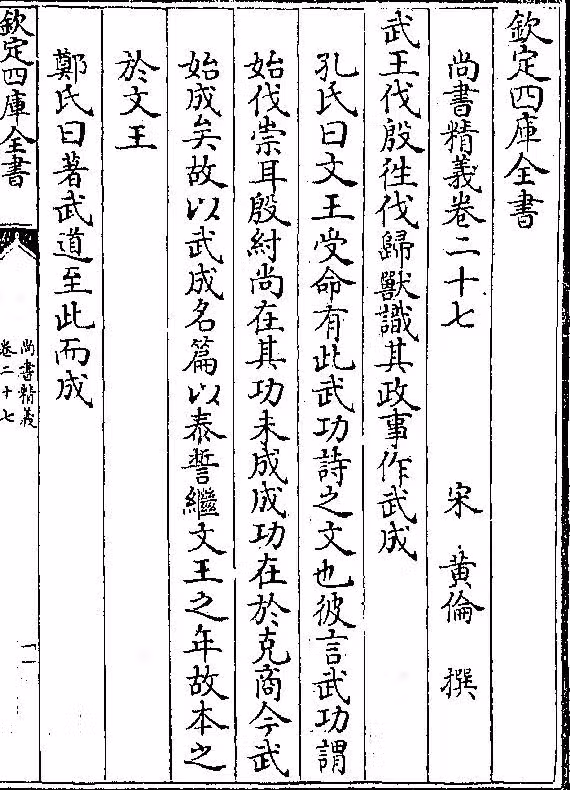 欽定四庫全書
尚書精義卷二十七　宋　黃倫　撰
武王伐殷徃伐歸獸識其政事作武成
孔氏曰文王受命有此武功詩之文也彼言武功謂
始伐崇耳殷紂尚在其功未成成功在於克商今武
始成矣故以武成名篇以泰誓繼文王之年故本之
於文王
鄭氏曰著武道至此而成
欽定四庫全書
尚書精義
卷二十七
一